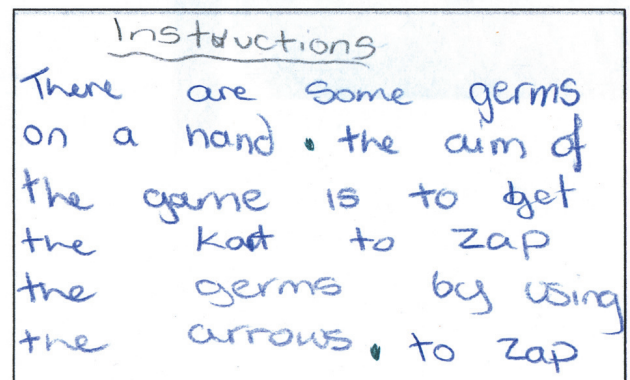 Instructions
There are some germs
on a hand. the aim of
the game is to get
the kart to zap
the germs by using
the arrows. to zap